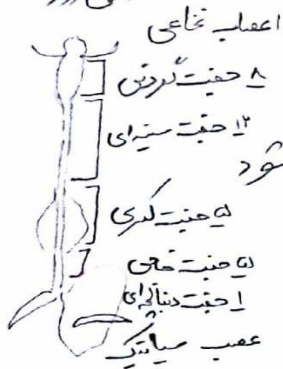 اعصاب نخاعی
۸ جفت گردنی
۱۲ جفت سینه‌ای
شود
۵ جفت کمری
۵ جفت خاجی
۱ جفت دنبالچه‌ای
عصب سیاتیک